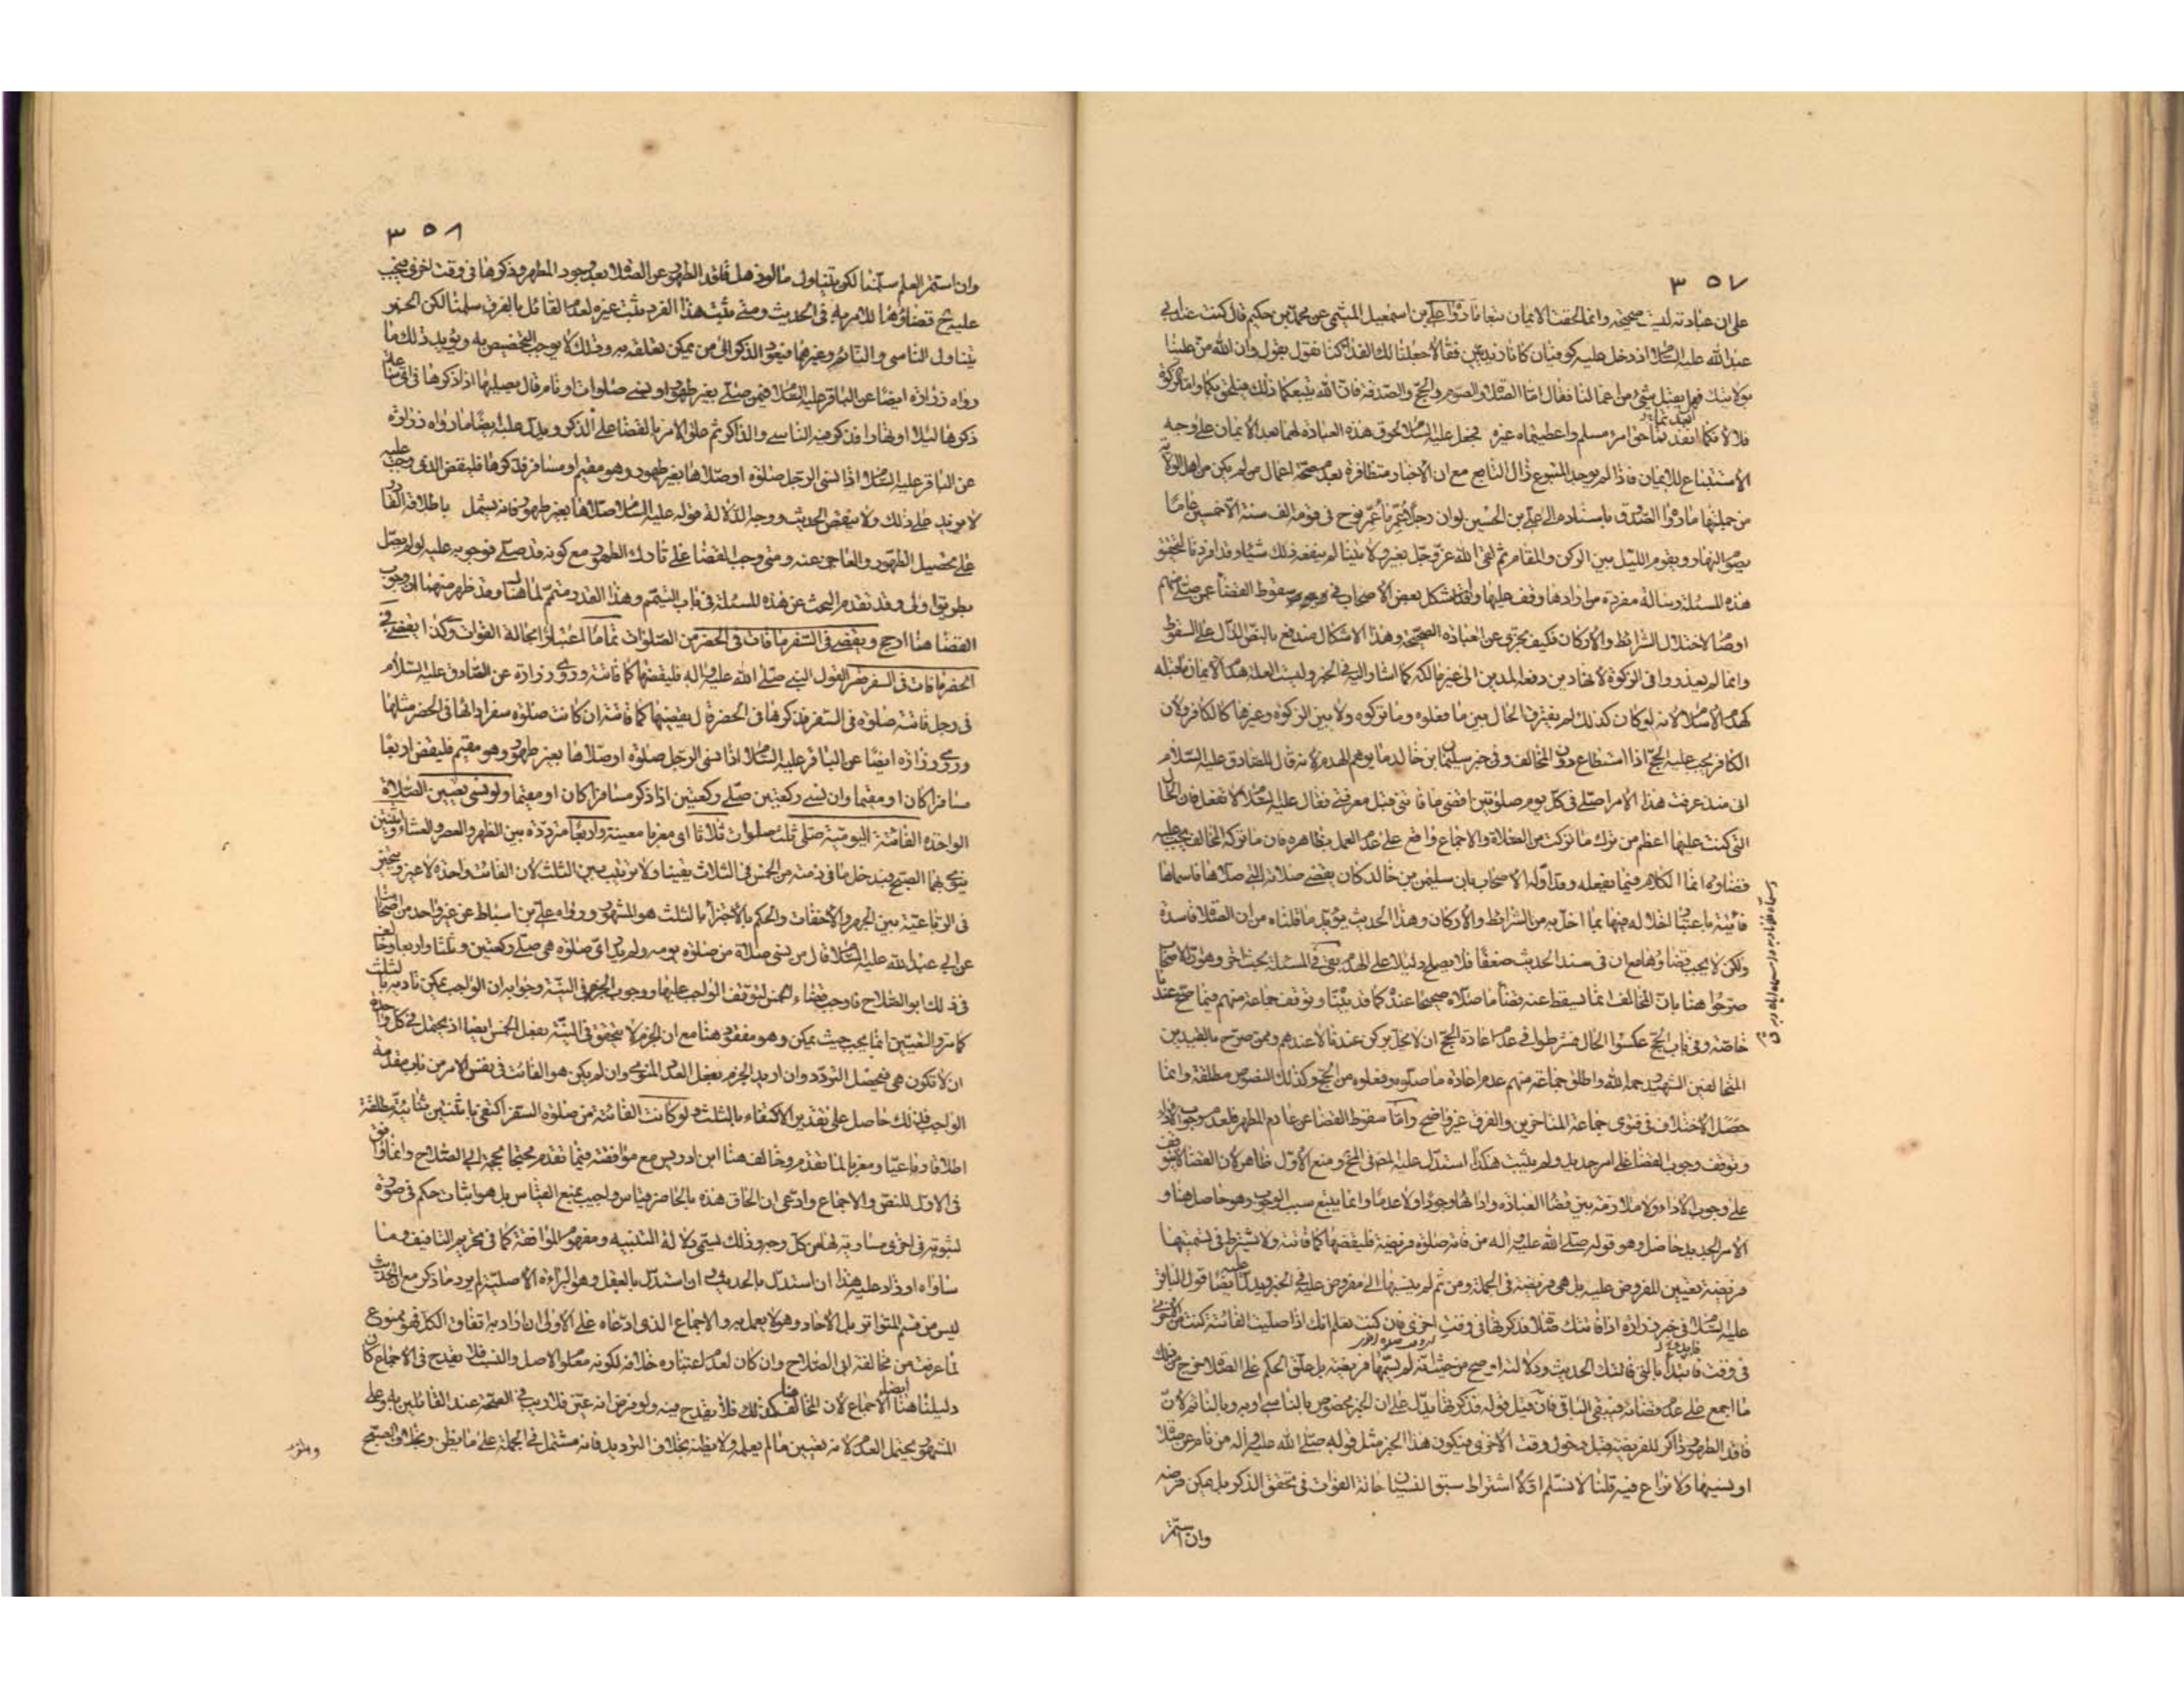 ٣٥٧
على ان عبادته ليست صحيحة وانما الحقت الايمان تبعا ما رواه علي بن اسمعيل الميثمي عن محمد بن حكيم قال كنت عند ابي
عبد الله عليه السلام اذ دخل عليه كوفيان كانا زيديين فقالا جعلنا لك الفدا كنا نقول بقول وان الله من علينا
بولايتك فهل يقبل شيء من اعمالنا فقال اما الصلاة والصوم والحج والصدقة فان الله يتبعكما ذلك فيلحق بكما واما الزكوة
فلا لانكما ابعدتما حق امرء مسلم واعطيتماه غيره فجعل عليه السلام لحوق هذه العبادة لهما بعد الايمان على وجه
الاستتباع للايمان فاذا لم يوجد المتبوع زال التابع مع ان الاخبار متظافرة بعدم صحة اعمال من لم يكن من اهل الولاية
من جملتها ما رواه الصدوق باسناده الى علي بن الحسين لو ان رجلا عمر ما عمر نوح في قومه الف سنة الا خمسين عاما
يصوم النهار ويقوم الليل بين الركن والمقام ثم لقى الله عز وجل بغير ولايتنا لم ينفعه ذلك شيئا وقد افردنا لتحقق
هذه المسئلة رسالة مفردة من ارادها وقف عليها ولقد اشكل بعض الاصحاب في سقوط القضاء عمن صلى منهم
او صام لاختلال الشرائط والاركان فكيف يجزي عن العبادة الصحيحة وهذا الاشكال مندفع بالنص الدال على السقوط
وانما لم يعذروا في الزكوة لانها دين دفعه المدين الى غير مالكه كما اشار اليه في الخبر وليست العلة هدم الايمان ما قبله
كهدم الاسلام لانه لو كان كذلك لم يفترق الحال بين ما فعلوه وما تركوه ولا بين الزكوة وغيرها كالكافر ولان
الكافر يجب عليه الحج اذا استطاع دون المخالف وفي خبر سليمان بن خالد ما يوهم الهدم لانه قال للصادق عليه السلام
اني منذ عرفت هذا الامر اصلي في كل يوم صلوتين اقضي ما فاتني قبل معرفتي فقال عليه السلام لا تفعل فان الحال
التي كنت عليها اعظم من ترك ما تركت من الصلاة والاجماع واقع على عدم العمل بظاهره فان ما تركه المخالف يجب عليه
قضاؤه انما الكلام فيما يفعله وقد اوله الاصحاب بان سليمن بن خالد كان يقضي صلاته التي صلاها فاسماها
فائتة باعتبار اخلاله فيها بما اخل به من الشرائط والاركان وهذا الحديث مؤيد ما قلناه من ان الصلاة فاسدة
ولكن لا يجب قضاؤها مع ان في سند الحديث ضعفا فلا يصلح دليلا على الهدم بقي في المسئلة بحث اخر وهو ان الاصحاب
صرحوا هنا بان المخالف انما يسقط عنه قضاء ما صلاه صحيحا عنده كما قد بيناه وتوقف جماعة منهم فيما صح عندنا
خاصة وفي باب الحج عكسوا الحال فشرطوا في عدم اعادة الحج ان لا يخل بركن عندنا لا عندهم وممن صرح بالقيدين
المتخالفين الشهيد رحمه الله واطلق جماعة منهم عدم اعادة ما صلوه وفعلوه من الحج وكذلك النصوص مطلقة وانما
حصل الاختلاف في فتوى جماعة المتاخرين والفرق غير واضح واما سقوط القضاء عن عادم المطهر فلعدم وجوب الاداء
وتوقف وجوب القضاء على امر جديد ولم يثبت هكذا استدل عليه المصـ في المخـ ومنع الاول ظاهر لان القضاء لا يتوقف
على وجوب الاداء ولا ملازمة بين قضاء العبادة وادائها وجودا ولا عدما وانما يتبع سبب الوجوب وهو حاصل هنا و
الامر الجديد حاصل وهو قوله صلى الله عليه واله من فاته صلوة فريضة فليقضها كما فاتته ولا يشترط في تسميتها
فريضة تعيين المفروض عليه بل هي فريضة في الجملة ومن ثم لم ينسبها الى مفروض عليه في الخبر ويدل عليه ايضا قول الباقر
عليه السلام في خبر زرارة اذا فاتتك صلاة فذكرتها في وقت اخرى فان كنت تعلم انك اذا صليت الفائتة كنت من الاخرى
في وقت فابدأ بالتي فاتتك الحديث ودلالته اوضح من حيث انه لم يسمها فريضة بل علق الحكم على الصلاة خرج من ذلك
ما اجمع على عدم قضائه فيبقى الباقي فان قيل قوله فذكرتها يدل على ان الخبر مخصوص بالناسي او به وبالنائم لان
فاقد الطهور ذاكر للفريضة قبل دخول وقت الاخرى فيكون هذا الخبر مثل قوله صلى الله عليه واله من نام عن صلاة
او نسيها ولا نزاع فيه قلنا لا نسلم اولا اشتراط سبق النسيان حالة الفوات في تحقق الذكر بل يمكن فرضه
وان استمر
٣٥٨
وان استمر العلم سلمنا لكن يتناول مالو ذهل فاقد الطهور عن الصلاة بعد وجود المطهر وذكرها في وقت اخرى فيجب
عليه ح قضاؤها للامر به في الحديث ومتى ثبت هذا الفرد ثبت غيره لعدم القائل بالفرق سلمنا لكن الخبر
يتناول الناسي والنائم وغيرهما فيعود الذكر الى من يمكن تعلقه به وذلك لا يوجب التخصيص به ويؤيد ذلك ما
رواه زرارة ايضا عن الباقر عليه السلام فيمن صلى بغير طهور او نسي صلوات او نام قال يصليها اذا ذكرها في اي ساعة
ذكرها ليلا او نهارا فذكر فيه الناسي والذاكر ثم علق الامر بالقضاء على الذكر ويدل عليه ايضا ما رواه زرارة
عن الباقر عليه السلام اذا نسي الرجل صلوة او صلاها بغير طهور وهو مقيم او مسافر فذكرها فليقض الذي وجب عليه
لا يزيد على ذلك ولا ينقص الحديث ووجه الدلالة قوله عليه السلام او صلاها بغير طهور فانه يشمل باطلاقه القادر
على تحصيل الطهور والعاجز عنه ومتى وجب القضاء على تارك الطهور مع كونه قد صلى فوجوبه عليه لو لم يصل
بطريق اولى وقد تقدم البحث عن هذه المسئلة في باب التيمم وهذا القدر متمم لما هناك وقد ظهر منهما ان وجوب
القضاء هنا ارجح ويقضي في السفر ما فات في الحضر من الصلوات تماما اعتبارا بحالة الفوات وكذا يقضي في
الحضر ما فات في السفر قصرا لقول النبي صلى الله عليه واله فليقضها كما فاتته وروى زرارة عن الصادق عليه السلام
في رجل فاتته صلوة في السفر فذكرها في الحضر قال يقضيها كما فاتته ان كانت صلوة سفر اداها في الحضر مثلها
وروى زرارة ايضا عن الباقر عليه السلام اذا نسي الرجل صلوة او صلاها بغير طهور وهو مقيم فليقض اربعا
مسافرا كان او مقيما وان نسي ركعتين صلى ركعتين اذا ذكر مسافرا كان او مقيما ولو نسي تعيين الصلاة
الواحدة الفائتة اليومية صلى ثلث صلوات ثلاثا اي مغربا معينة واربعا مرددة بين الظهر والعصر والعشاء واثنتين
ينوي بهما الصبح فيدخل ما في ذمته من الخمس في الثلاث يقينا ولا ترتيب بين الثلث لان الفائت واحدة لا غير ويتخير
في الرباعية بين الجهر والاخفات والحكم بالاجتزاء بالثلث هو المشهور ورواه علي بن اسباط عن غير واحد من اصحابنا
عن ابي عبد الله عليه السلام قال من نسي صلاة من صلوة يومه ولم يدر اي صلوة هي صلى ركعتين وثلثا واربعا وخالف
في ذلك ابو الصلاح فاوجب قضاء الخمس لتوقف الواجب عليها ووجوب الجزم في النية وجوابه ان الواجب يمكن تاديه بالثلث
كما مر والتعيين انما يجب حيث يمكن وهو مفقود هنا مع ان الجزم لا يتحقق في النية بفعل الخمس ايضا اذ يحتمل في كل واحدة
ان لا تكون هي فيحصل التردد وان اريد الجزم بفعل العدد المنوي وان لم يكن هو الفائت في نفس الامر من باب مقدمة
الواجب فذلك حاصل على تقدير الاكتفاء بالثلث ولو كانت الفائتة من صلوة السفر اكتفى باثنتين ثنائية مطلقة
اطلاقا رباعيا ومغربا لما تقدم وخالف هنا ابن ادريس مع موافقته فيما تقدم محتجا بحجة ابي الصلاح وانما وافق
في الاول للنص والاجماع وادعى ان الحاق هذه بالحاضر قياس واجيب بمنع القياس بل هو اثبات حكم في صورة
لثبوته في اخرى مساوية لها من كل وجه وذلك يسمى دلالة التنبيه ومفهوم الموافقة كما في تحريم التافيف وما
ساواه او زاد عليه هذا ان استدل بالحديث وان استدل بالعقل وهو البراءة الاصلية لم يرد ما ذكر مع ان الحديث
ليس من قسم المتواتر بل الاحاد وهو لا يعمل به والاجماع الذي ادعاه على الاولى ان اراد به اتفاق الكل فهو ممنوع
لما عرفت من مخالفة ابي الصلاح وان كان لعدم اعتباره خلافه لكونه معلوم الاصل والنسب فلا يقدح في الاجماع كان
دليلنا هنا ايضا الاجماع لان المخالف هنا كذلك فلا يقدح فيه ولو فرض انه عين فلا ريب في الصحة عند القائلين به وعلى
المشهور يحتمل العدم لانه تعيين ما لم يعلمه ولا يظنه بخلاف الترديد فانه مشتمل في الجملة على ما يظن وبخلاف الصبح